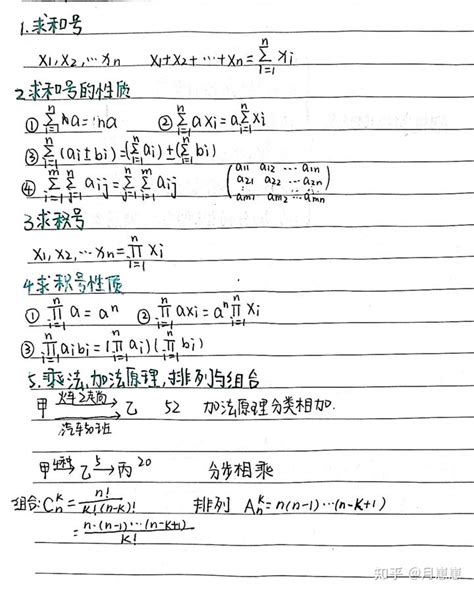 1.求和号
x₁,x₂,…xₙ x₁+x₂+…+xₙ=∑ⁿᵢ₌₁ xᵢ
2.求和号的性质
① ∑ⁿᵢ₌₁ a=na ② ∑ⁿᵢ₌₁ axᵢ=a∑ⁿᵢ₌₁ xᵢ
③ ∑ⁿᵢ₌₁ (aᵢ±bᵢ)=(∑ⁿᵢ₌₁ aᵢ)±(∑ⁿᵢ₌₁ bᵢ)
④ ∑ᵐᵢ₌₁ ∑ⁿⱼ₌₁ aᵢⱼ=∑ⁿⱼ₌₁ ∑ᵐᵢ₌₁ aᵢⱼ (a₁₁ a₁₂ … a₁ₙ
a₂₁ a₂₂ … a₂ₙ
aₘ₁ aₘ₂ … aₘₙ)
3.求积号
x₁,x₂,…xₙ=∏ⁿᵢ₌₁ xᵢ
4.求积号性质
① ∏ⁿᵢ₌₁ a=aⁿ ② ∏ⁿᵢ₌₁ axᵢ=aⁿ∏ⁿᵢ₌₁ xᵢ
③ ∏ⁿᵢ₌₁ aᵢbᵢ=(∏ⁿᵢ₌₁ aᵢ)(∏ⁿᵢ₌₁ bᵢ)
5.乘法,加法原理,排列与组合
甲 火车2 → 乙 52 加法原理分类相加.
汽车50班
甲 → 乙 5→ 丙 20 分步相乘
组合:Cₙᵏ=n!/k!(n-k)! 排列 Aₙᵏ=n(n-1)…(n-k+1)
=n·(n-1)…(n-k+1)/k!
知乎 @月崽崽